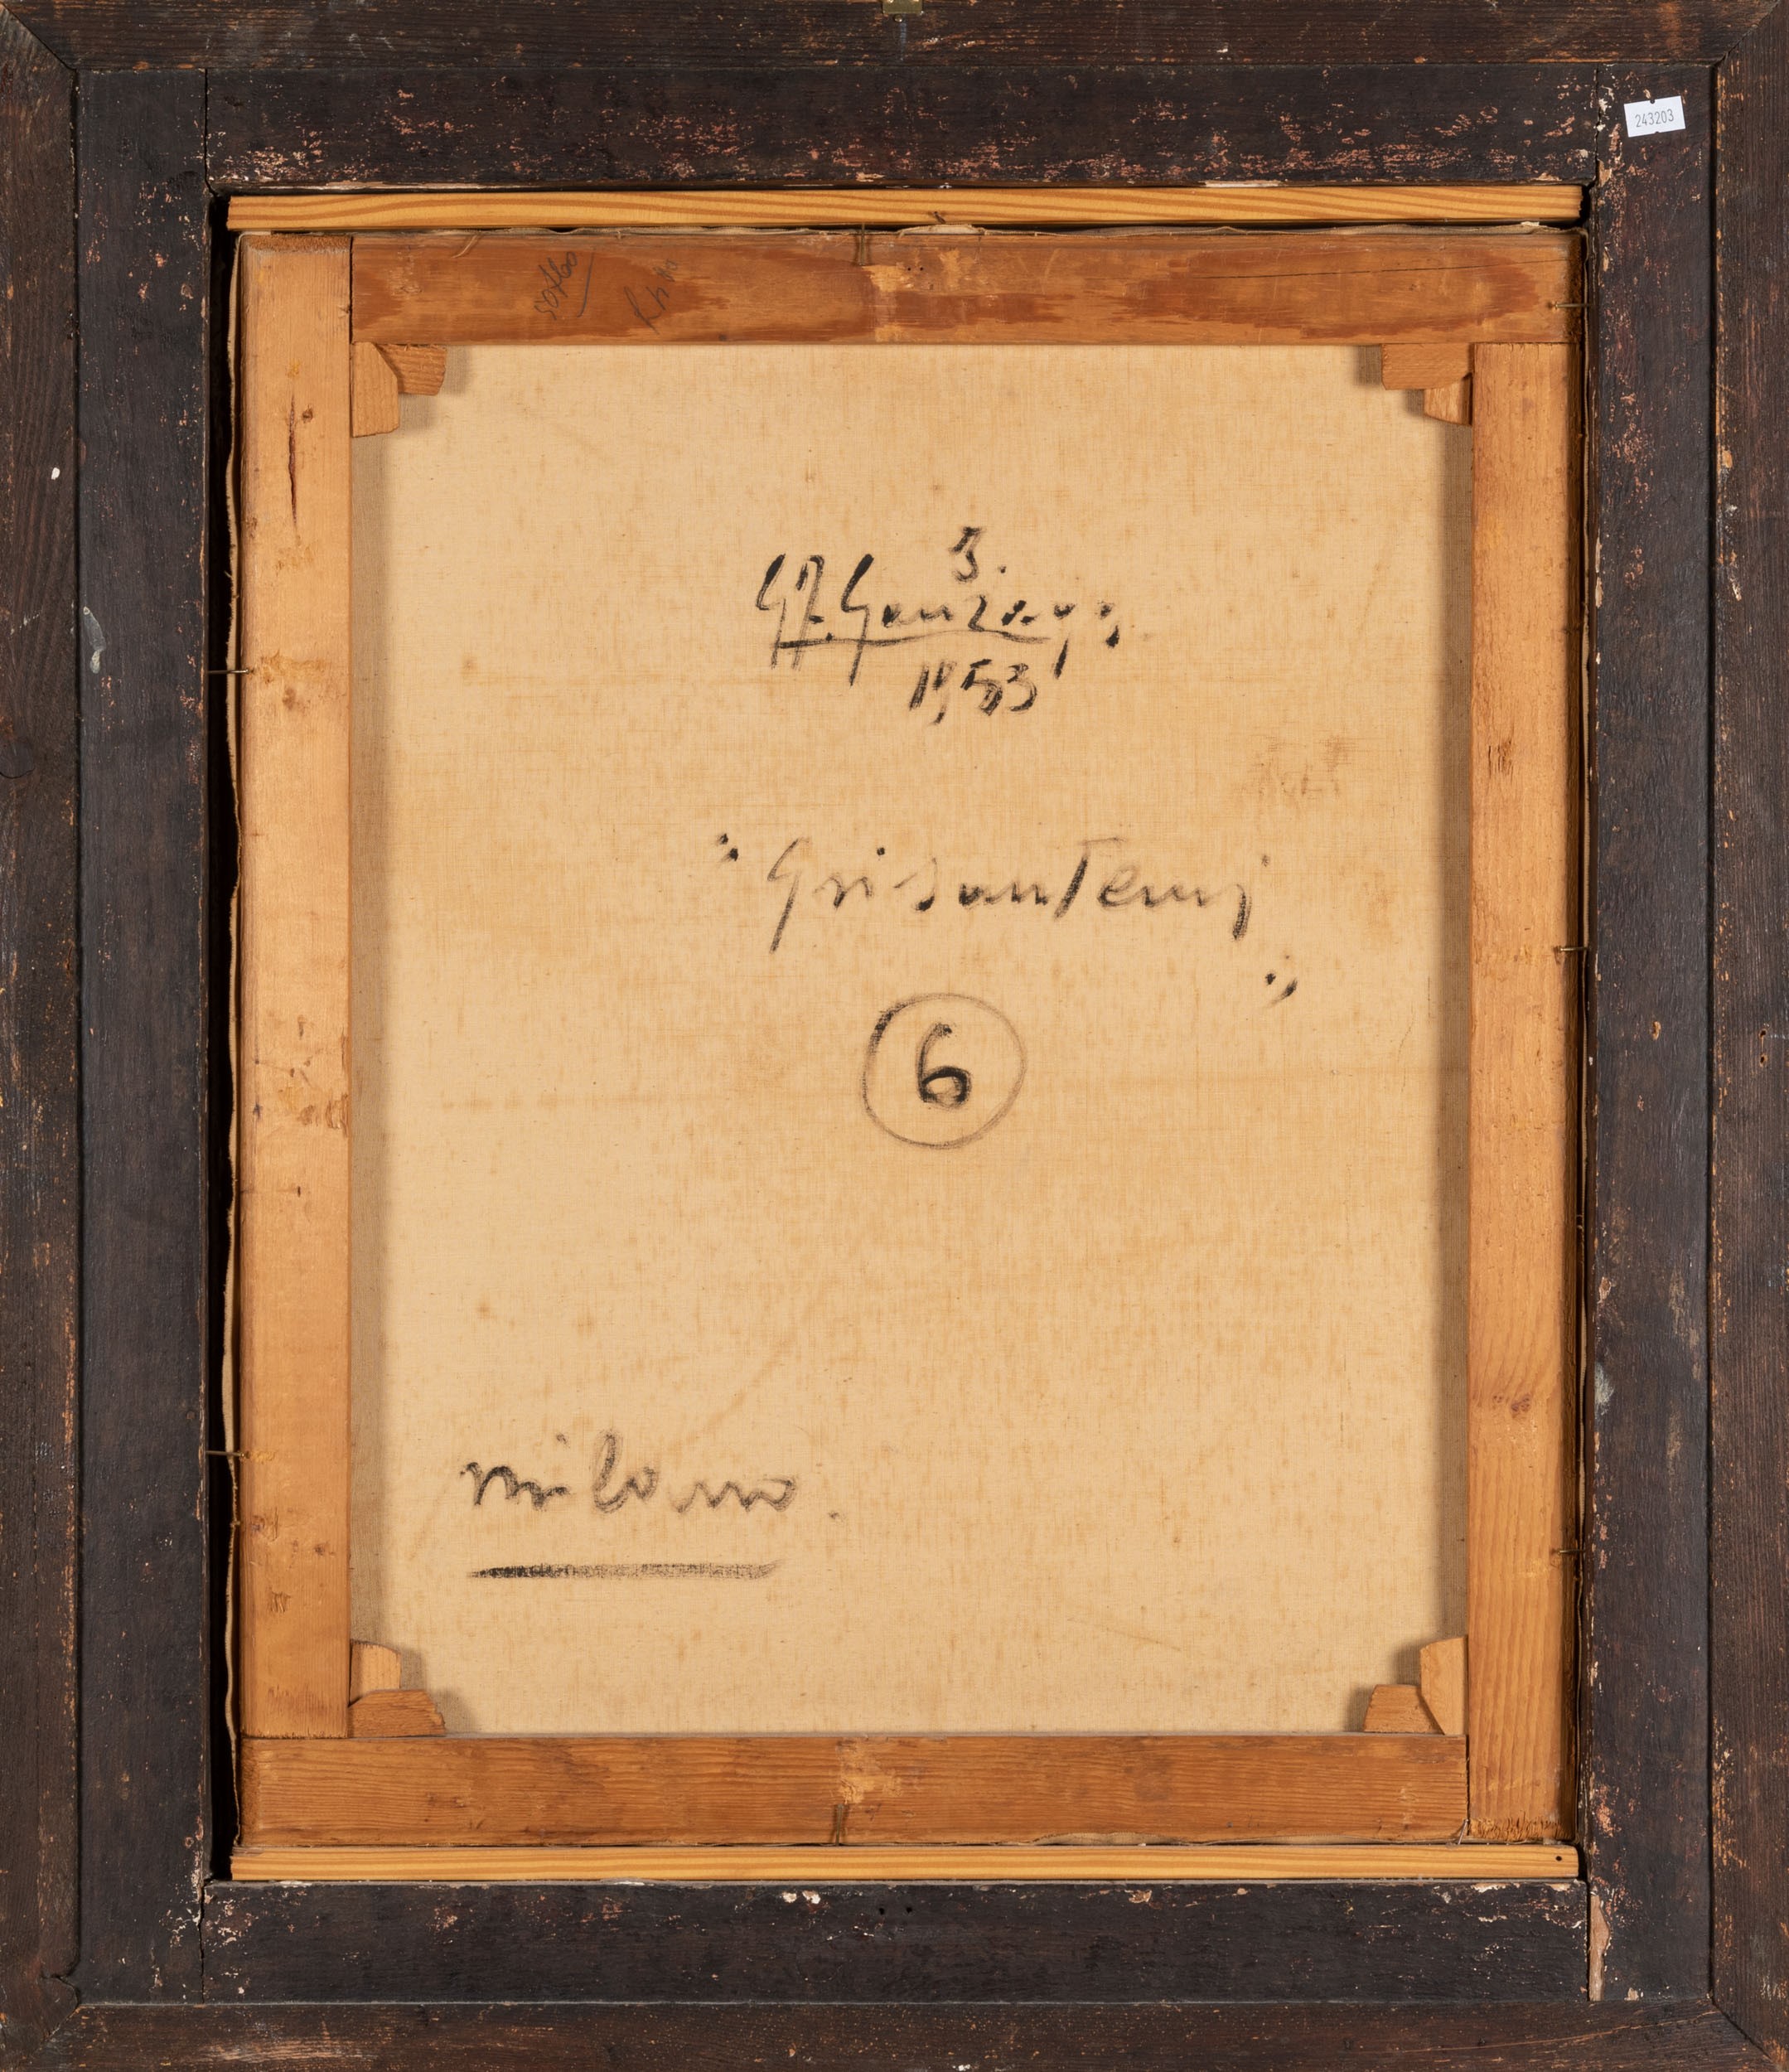 243203
50X60
3.
G.F. Gonzaga
1953
"Grisantemi
"
6
milano.